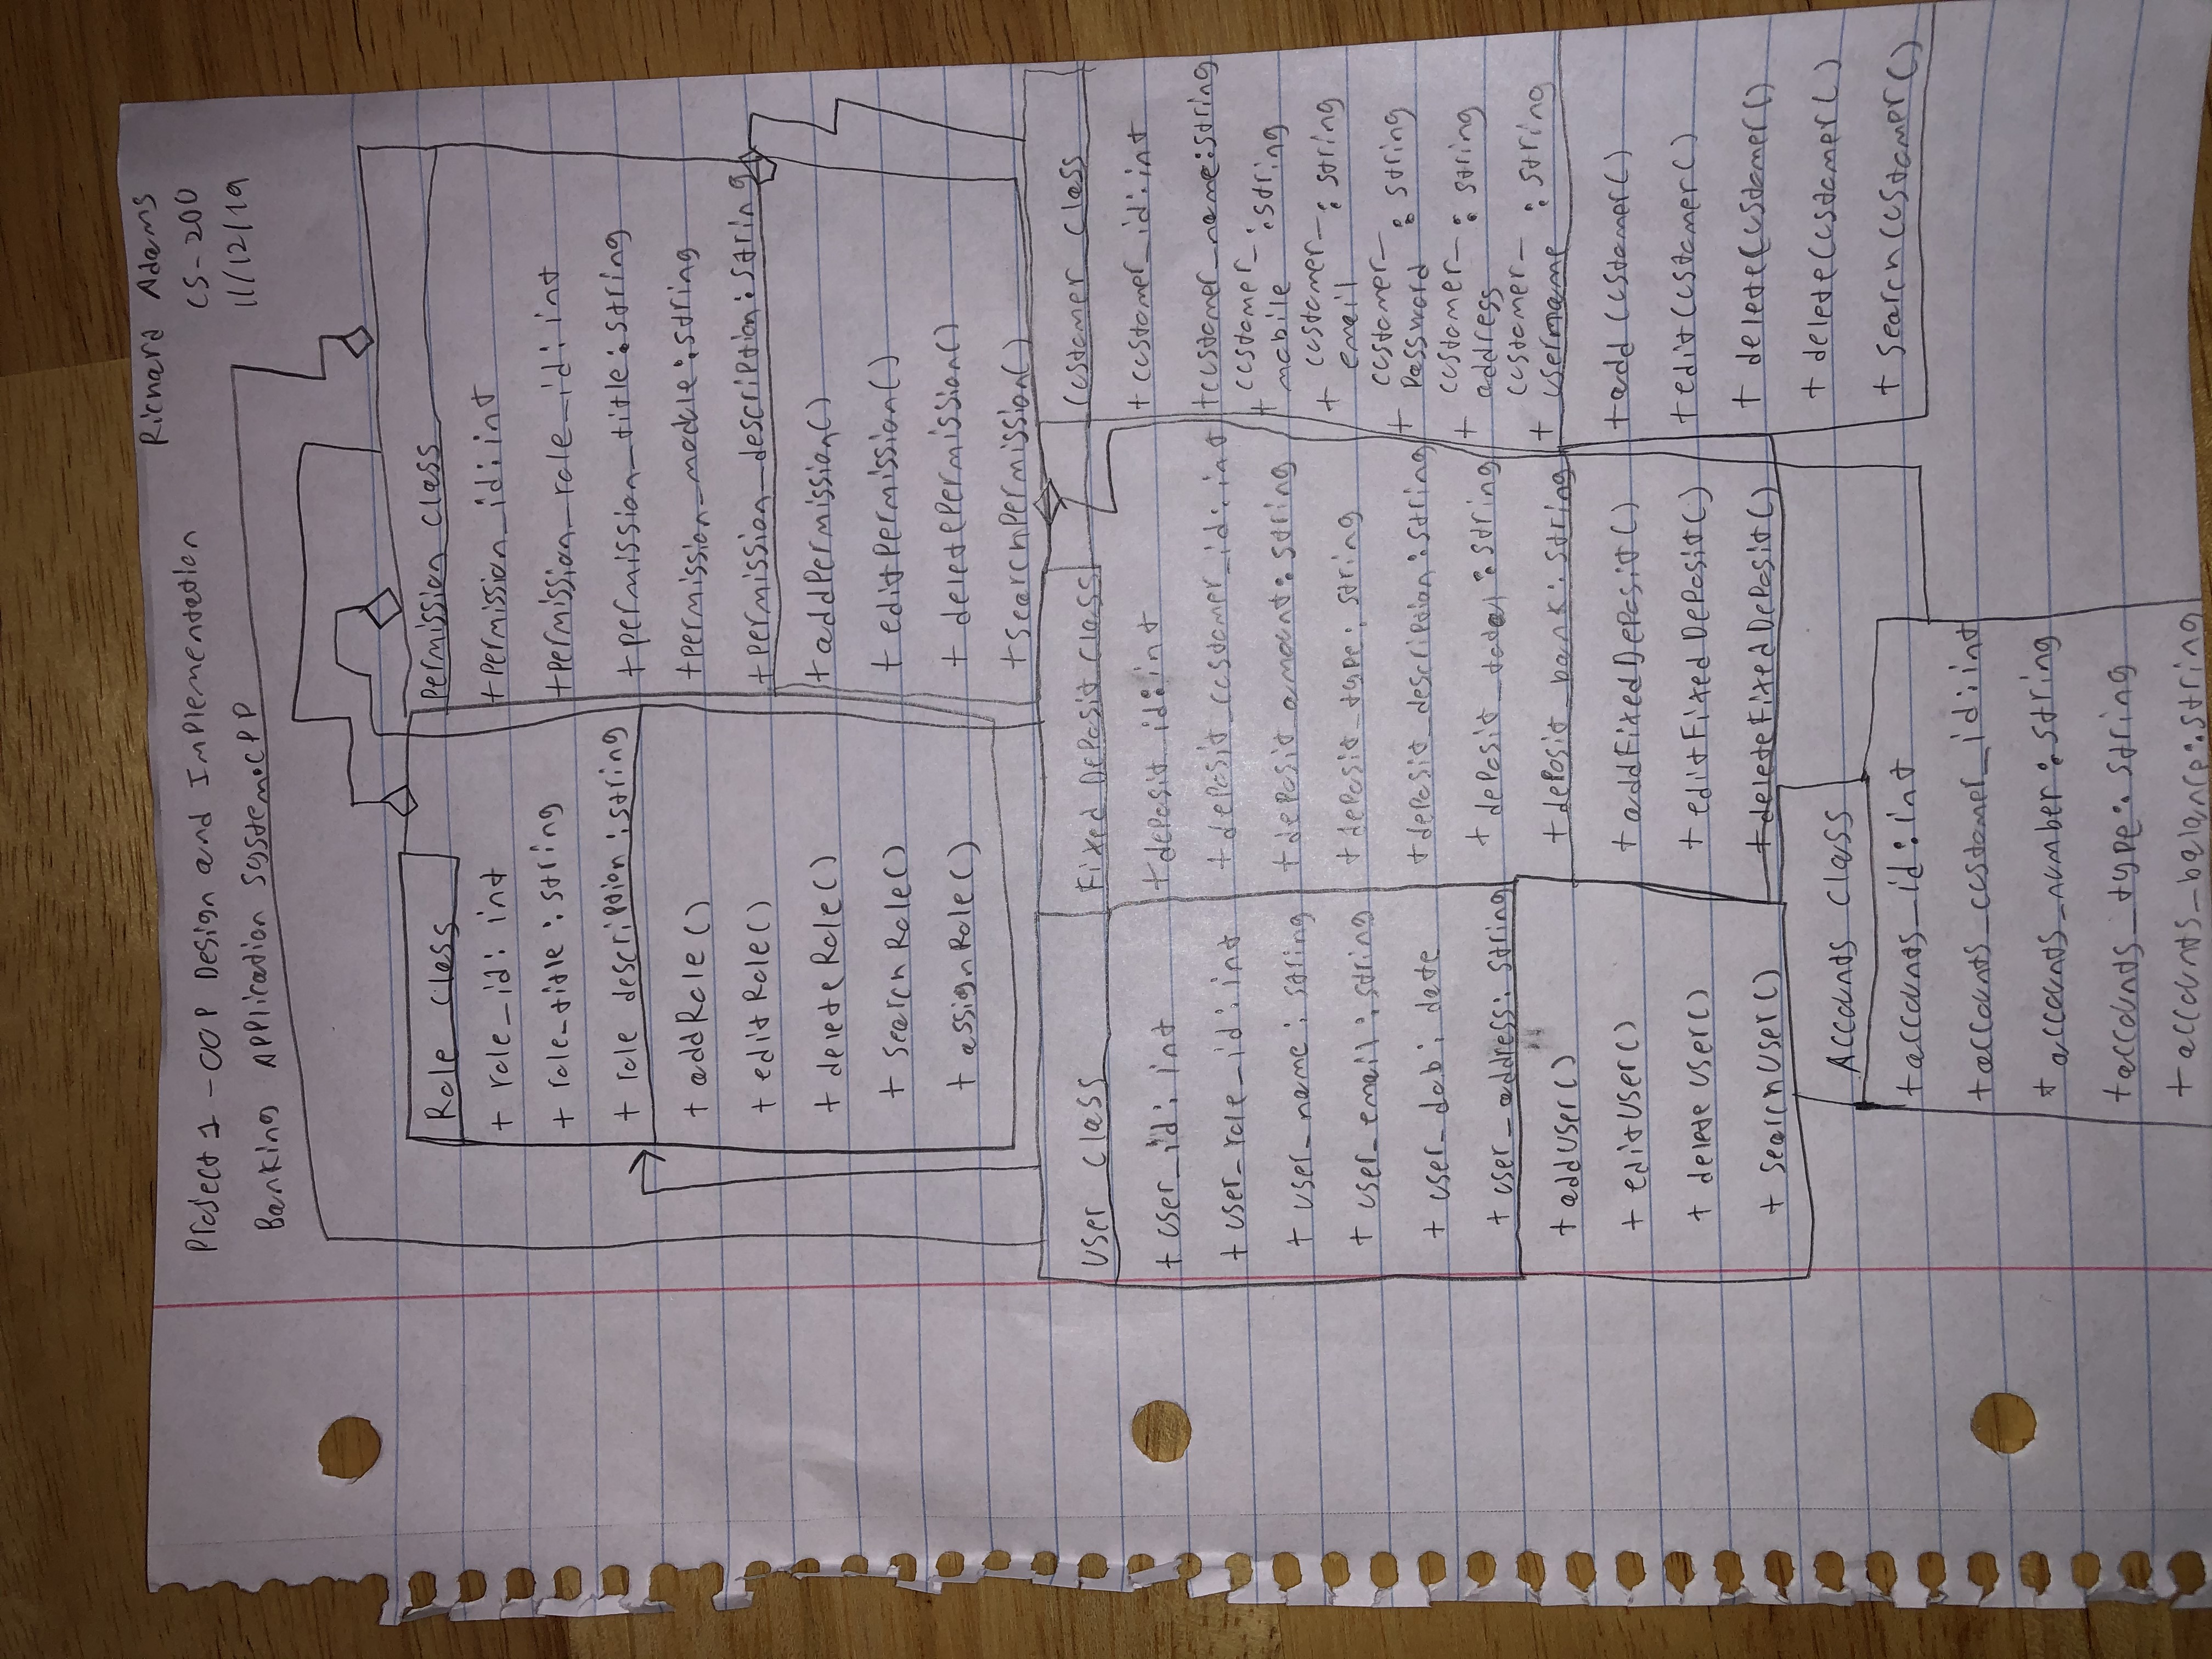 Richard Adams
Project 1 - OOP Design and Implementation
CS-200
Banking Application System.CPP
11/12/19
Role Class
+ role_id: int
+ role_title: string
+ role description: string
+ addRole()
+ editRole()
+ deleteRole()
+ searchRole()
+ assignRole()
Permission Class
+permission_id: int
+permission_role_id: int
+permission_title: string
+permission_module: string
+permission_description: string
+addPermission()
+ editPermission()
+ deletePermission()
+searchPermission()
User Class
+ user_id: int
+ user_role_id: int
+ user_name: string
+ user_email: string
+ user_dob: date
+ user_address: string
+ addUser()
+ editUser()
+ deleteUser()
+ searchUser()
Fixed Deposit Class
+deposit_id: int
+deposit_customer_id: int
+deposit_amount: string
+deposit_type: string
+deposit_description: string
+ deposit_total: string
+deposit_bank: string
+addFixedDeposit()
+editFixedDeposit()
+deleteFixedDeposit()
Customer Class
+ customer_id: int
+customer_name: string
+ customer_
mobile : string
+ customer_
email : string
+ customer_
password : string
+ customer_
address : string
+ customer_
username : string
+add Customer()
+editCustomer()
+ deleteCustomer()
+ deleteCustomer()
+ searchCustomer()
Accounts Class
+accounts_id: int
+accounts_customer_id: int
+ accounts_number: string
+accounts_type: string
+accounts_balance: string